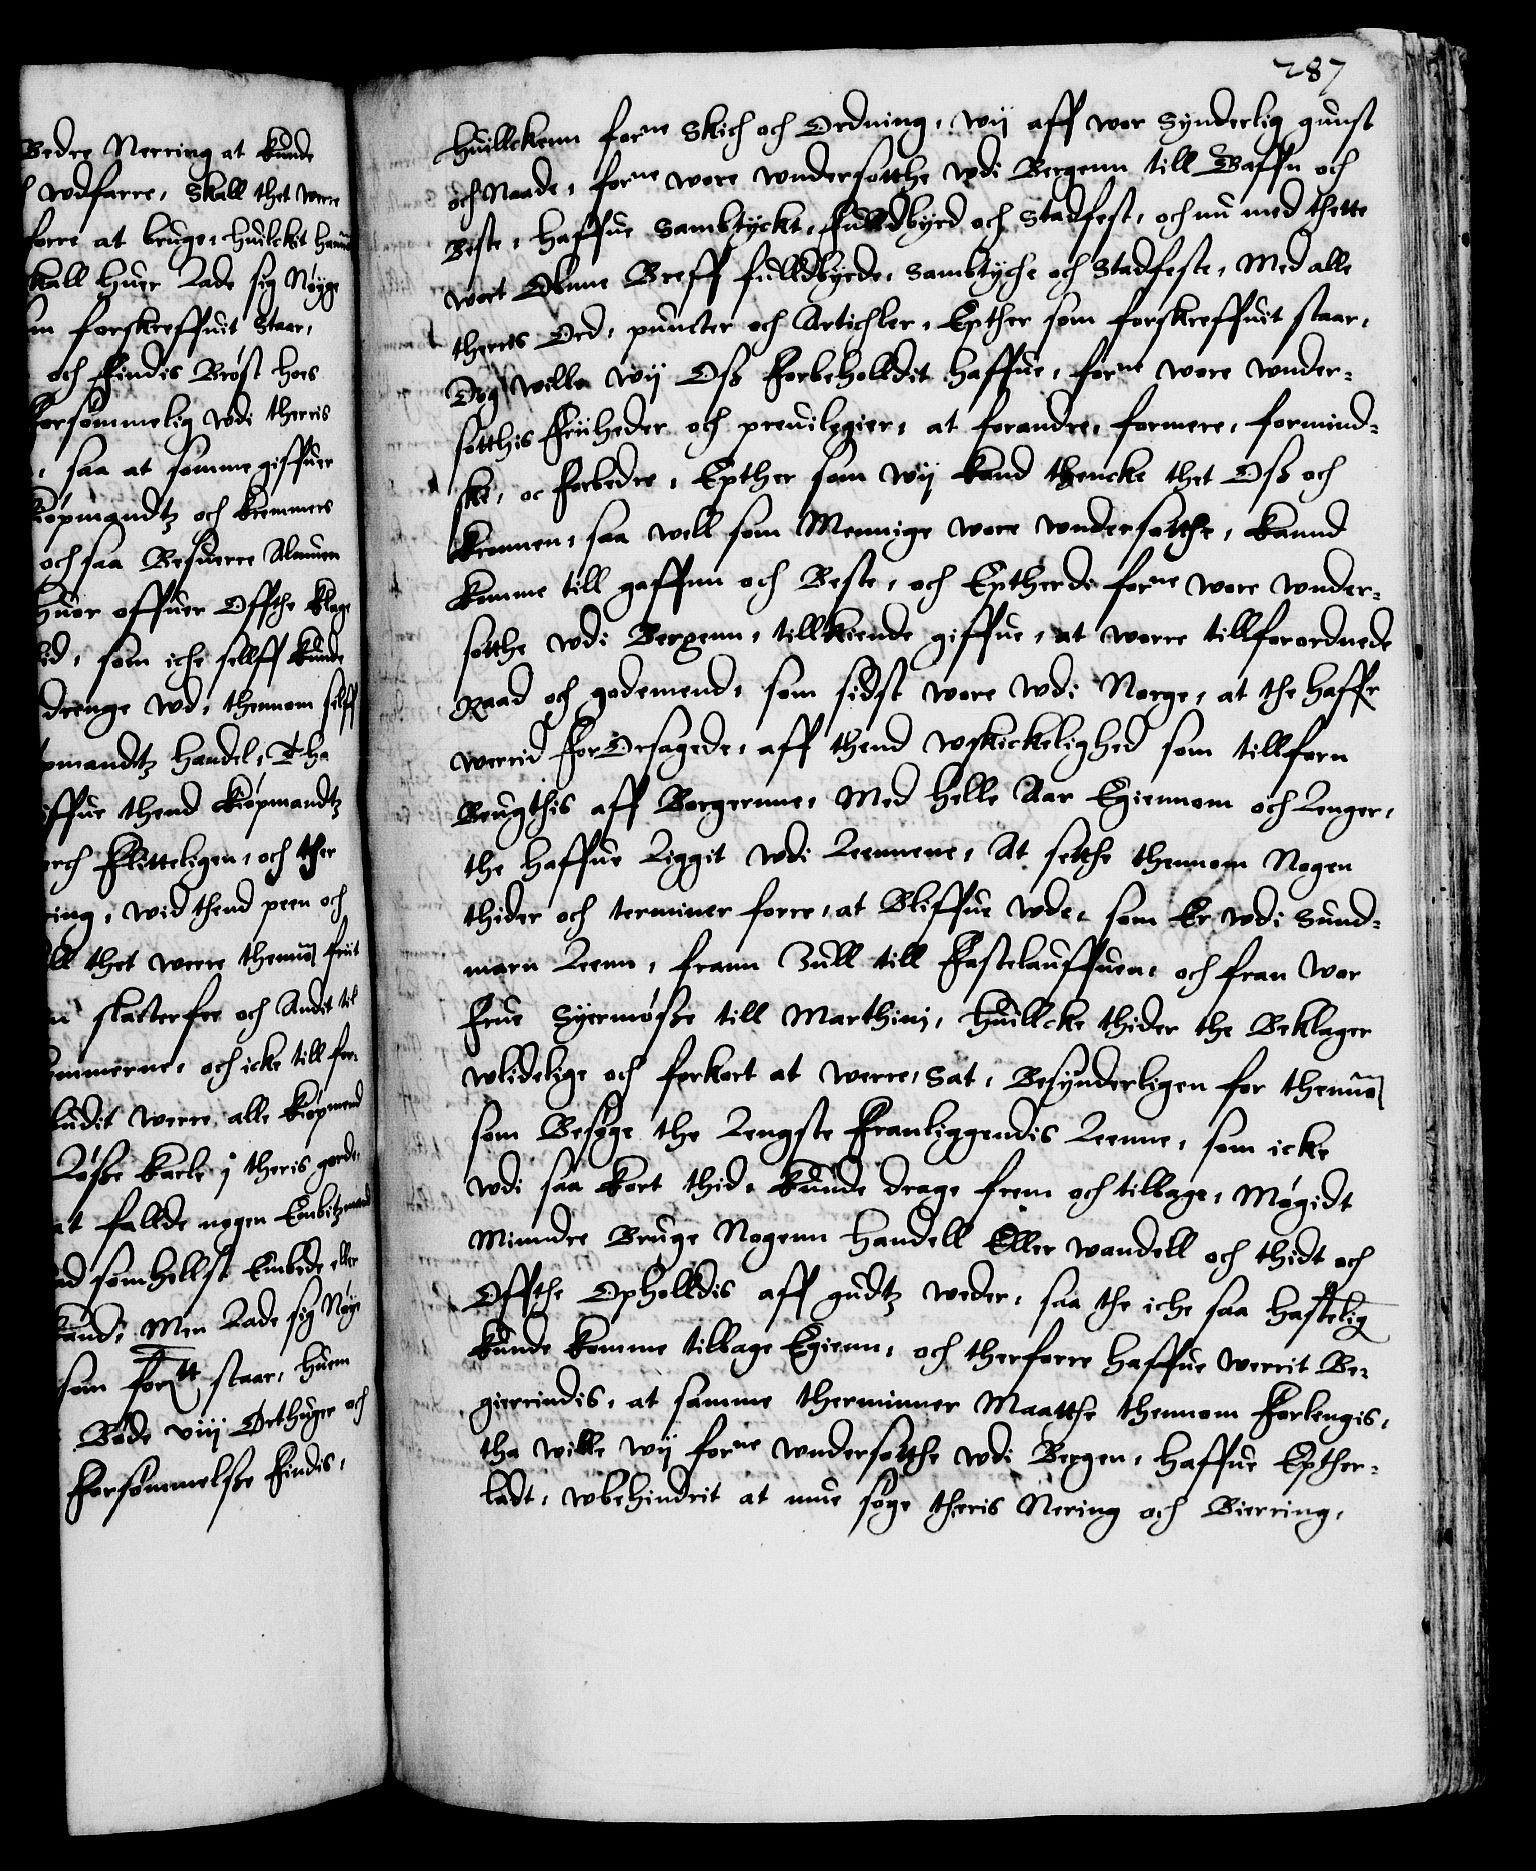 Bedre Nerring at kunde
wdfarre, Skall thet werre
forre at bruge, huilckit
kall huer Lade sig Nøyge
forskreffuit Staar,
och findis Brøst hoes
forsømmelig wdi therris
, saa at somme giffuer
kiøpmandtz och kremmers
och saa Besuerre Almuen
huor offuer Offthe klage
, som iche sellff kunde
drenge wd, thennom selff
pmandtz handel, Tha
iffue thend kiøpmandtz
Flitteligen, och ther
ing, wid thend peen och
ll thet werre thennom friit
skatterfee och Andit til
emmerne, och icke till for-
budit werre, alle kiøpmend
Løsse karle j theris gorde,
at kallde nogen Embitzmand
somhellst Embede eller
Men Lade sig Nøye
som for.tt staar, huem
Bøde viij Ørthuger och
Forsømmelsse Findis,
287
Huillckenn for.ne Skick och Ordning, wij aff wor Synderlig gunst
och Naade, for.ne wore wndersotthe wdi Bergenn till Gaffn och
Beste, haffue Sambtyckt, Fulldbyrd och Stadfest, och nu med thette
wort Obne Breff fulldbyrde, Sambtyche och Stadfeste, Med alle
therris Ord, puncter och Artichler, Epther som forskreffuit staar,
Dog wille wij Oss Forbeholldit haffue, for.ne wore wnder-
sotthis Friiheder och preuilegier, at forandre, formere, formind-
ske, oc forbedre, Epther som wij kand thencke thet Oss och
kronnen, saa well som Mennige wore wndersotthe, kannd
komme till gaffnn och Beste, och Eptherdi for.ne wore wnder-
sotthe wdi Bergenn, tillkiende giffue, at worre tillforordnede
Raad och godemend, som sidst wore wdi Norge, at the haffr
werrid ForOrsagede, aff thend wskickelighed som tillforn
Brugthis aff Borgerne, Med helle Aar Egiennom och Lenger,
the haffue Liggit wdi Leennene, At setthe thennom Nogen
thider och terminer forre, at Bliffue wde, som Er wdi Sund-
marn Leenn, frann Jull till Fastelauffuen, och fran Wor
Frue Syermøsse till Marthini, huillcke thider the Beklager
wlidelige och forkort at werre, Sat, Besynderligen for thennom
som Besøge the Lengste Franliggendis Leenne, som icke
wdi saa kort thid, kunde drage frem och tilbage, Møgidt
Minndre Bruge Nogenn Handell Eller wandell och thidt och
Offthe Opholldis aff gudtz weder, saa the iche saa hastelig
kunde komme tilbage Egienn, och therforre haffue werrit Be-
gierrindis, at samme therminner Maatthe thennom Forlengis,
tha wille wij for.ne wndersotthe wdi Bergen, haffue Epther-
ladt, wbehindrit at mue søge theris Nering och Bierring,